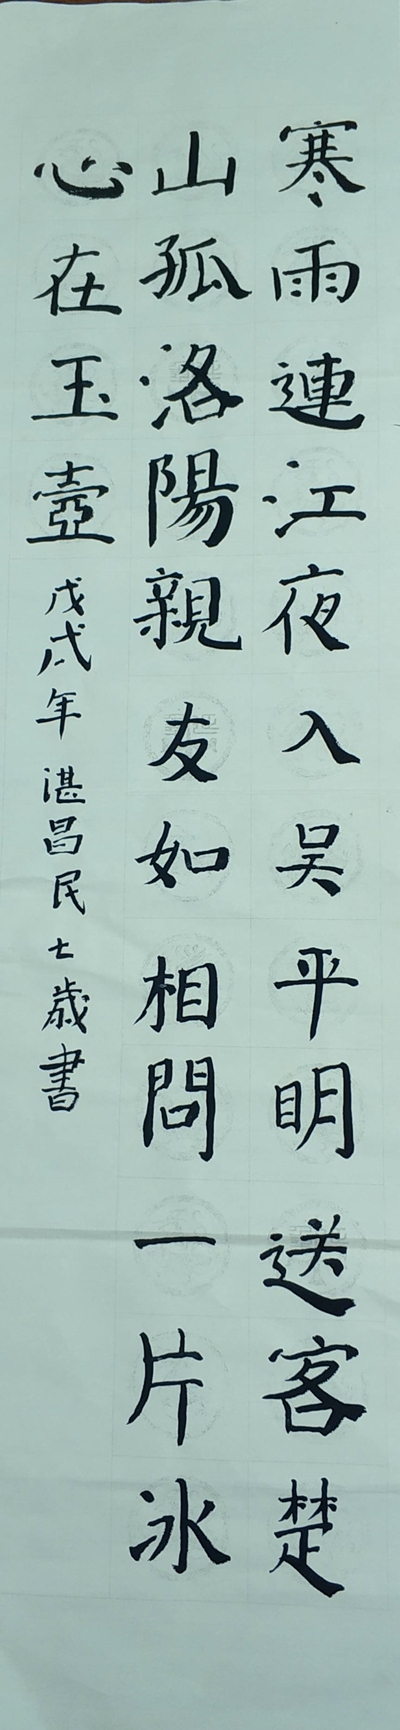 寒雨連江夜入吴平明送客楚
山孤洛陽親友如相問一片冰
心在玉壺
戊戌年湛昌民七歲書